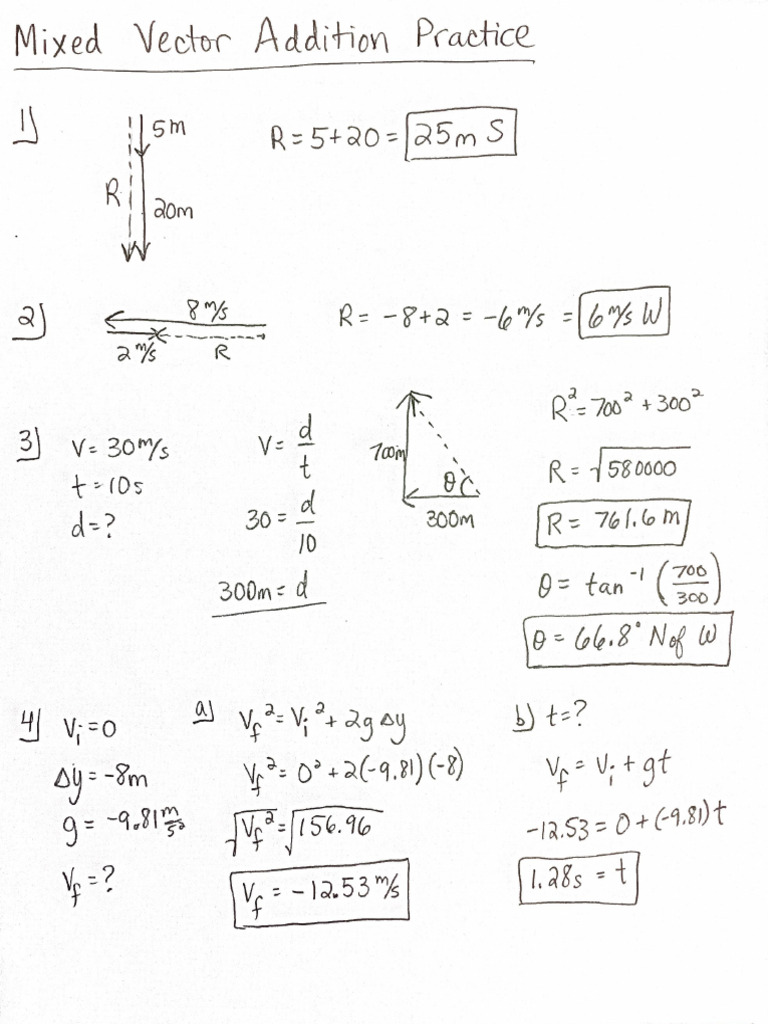 Mixed Vector Addition Practice
1)
5m
R
20m
R = 5+20 = 25m S
2)
8 m/s
2 m/s
R
R = -8+2 = -6 m/s = 6 m/s W
3)
V = 30 m/s
t = 10s
d = ?
V = d/t
30 = d/10
300m = d
700m
θ
300m
R² = 700² + 300²
R = √580000
R = 761.6 m
θ = tan⁻¹ (700/300)
θ = 66.8° N of W
4)
Vi = 0
Δy = -8m
g = -9.81 m/s²
Vf = ?
a)
Vf² = Vi² + 2gΔy
Vf² = 0² + 2(-9.81)(-8)
√Vf² = √156.96
Vf = -12.53 m/s
b) t = ?
Vf = Vi + gt
-12.53 = 0 + (-9.81)t
1.28s = t